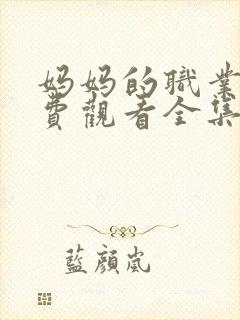 妈妈的職業
費觀看全集
藍顏嵐